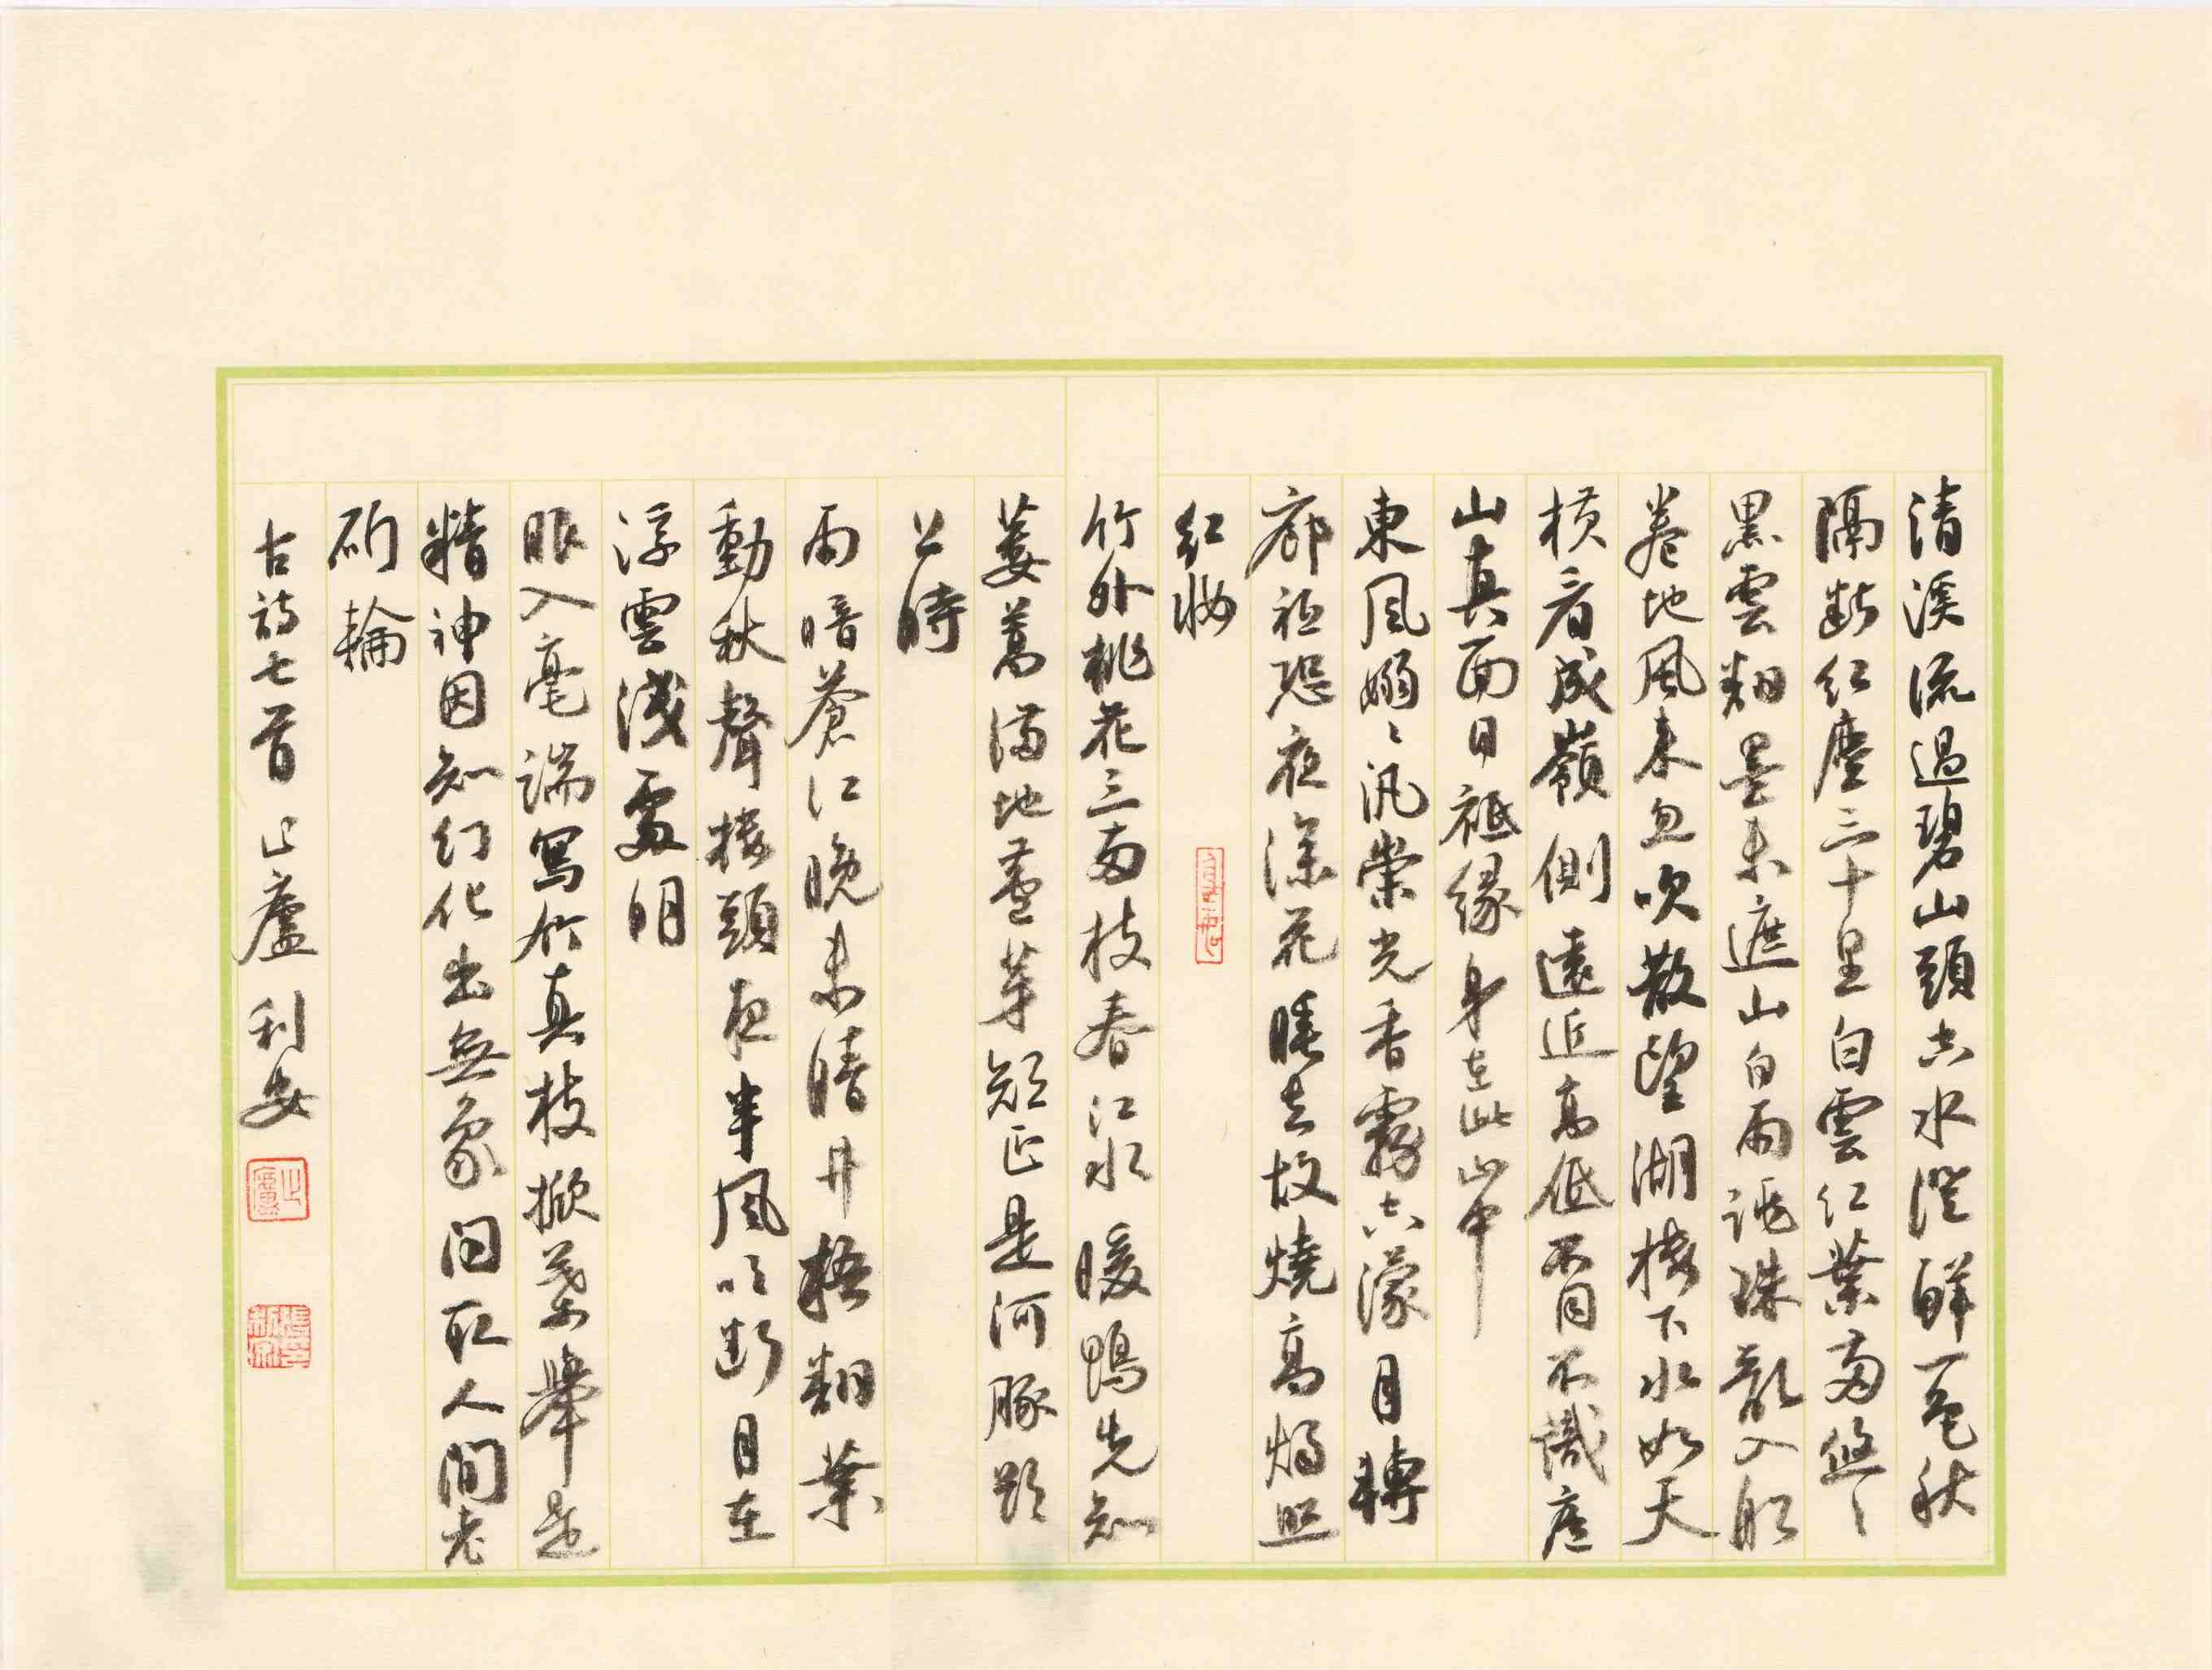 清溪流過碧山頭空水澄鮮一色秋
隔斷紅塵三十里白雲紅葉兩悠〻
黑雲翻墨未遮山白雨跳珠亂入船
卷地風來忽吹散望湖樓下水如天
橫看成嶺側遠近高低不同不識廬
山真面目祗緣身在此山中
東風嫋〻汎崇光香霧空濛月轉
廊祗恐夜深花睡去故燒高燭照
紅妝
竹外桃花三兩枝春江水暖鴨先知
蔞蒿滿地蘆芽短正是河豚欲
上時
雨暗蒼江晚未晴井梧翻葉
動秋聲樓頭夜半風吹斷月在
浮雲淺處明
眼入毫端寫竹真枝掀葉舉是
精神因知幻化出無象問取人間老
斫輪
古詩七首 止廬 利安
止廬